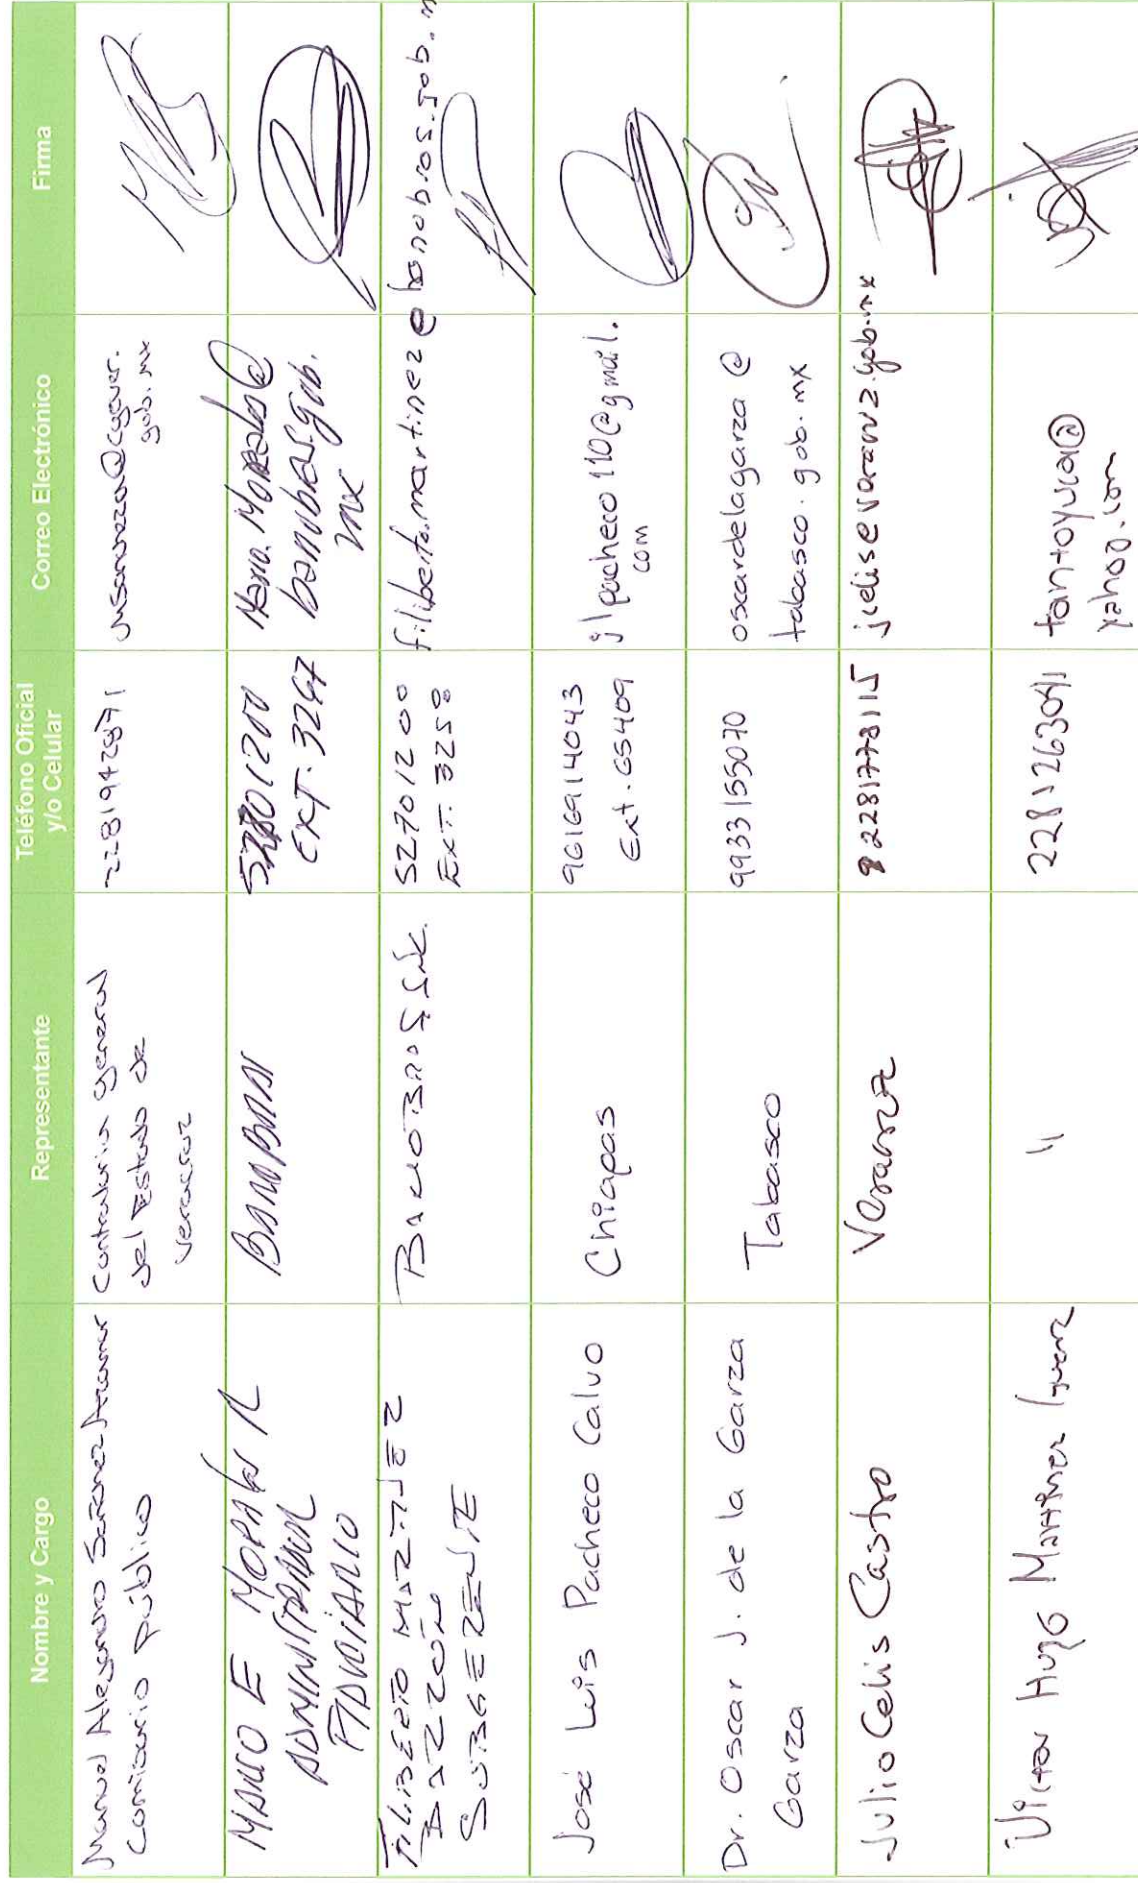 Nombre y Cargo
Representante
Teléfono Oficial
y/o Celular
Correo Electrónico
Firma
Manuel Alejandro Sanchez
Comisario público
Contraloria general
del Estado de
Veracruz
2281942871
gob.mx
MARIO E MORALES R
ADMINISTRADOR
FIDUCIARIO
BANOBRAS
EXT. 3267
Mario.Morales@
banobras.gob.
mx
FILIBERTO MARTINEZ
BAZZUÑO
SUBGERENTE
BANOBRAS S.N.C.
52701200
EXT. 3258
filiberto.martinez@banobras.gob.m
José Luis Pacheco Calvo
Chiapas
9616914043
Ext. 65409
jlpacheco110@gmail.
com
Dr. Oscar J. de la Garza
Garza
Tabasco
9933155070
oscardelagarza@
tabasco.gob.mx
Julio Celis Castro
Veracruz
2281778115
jcelis@veracruz.gob.mx
Victor Hugo Martinez
"
tantoyuca1@
yahoo.com